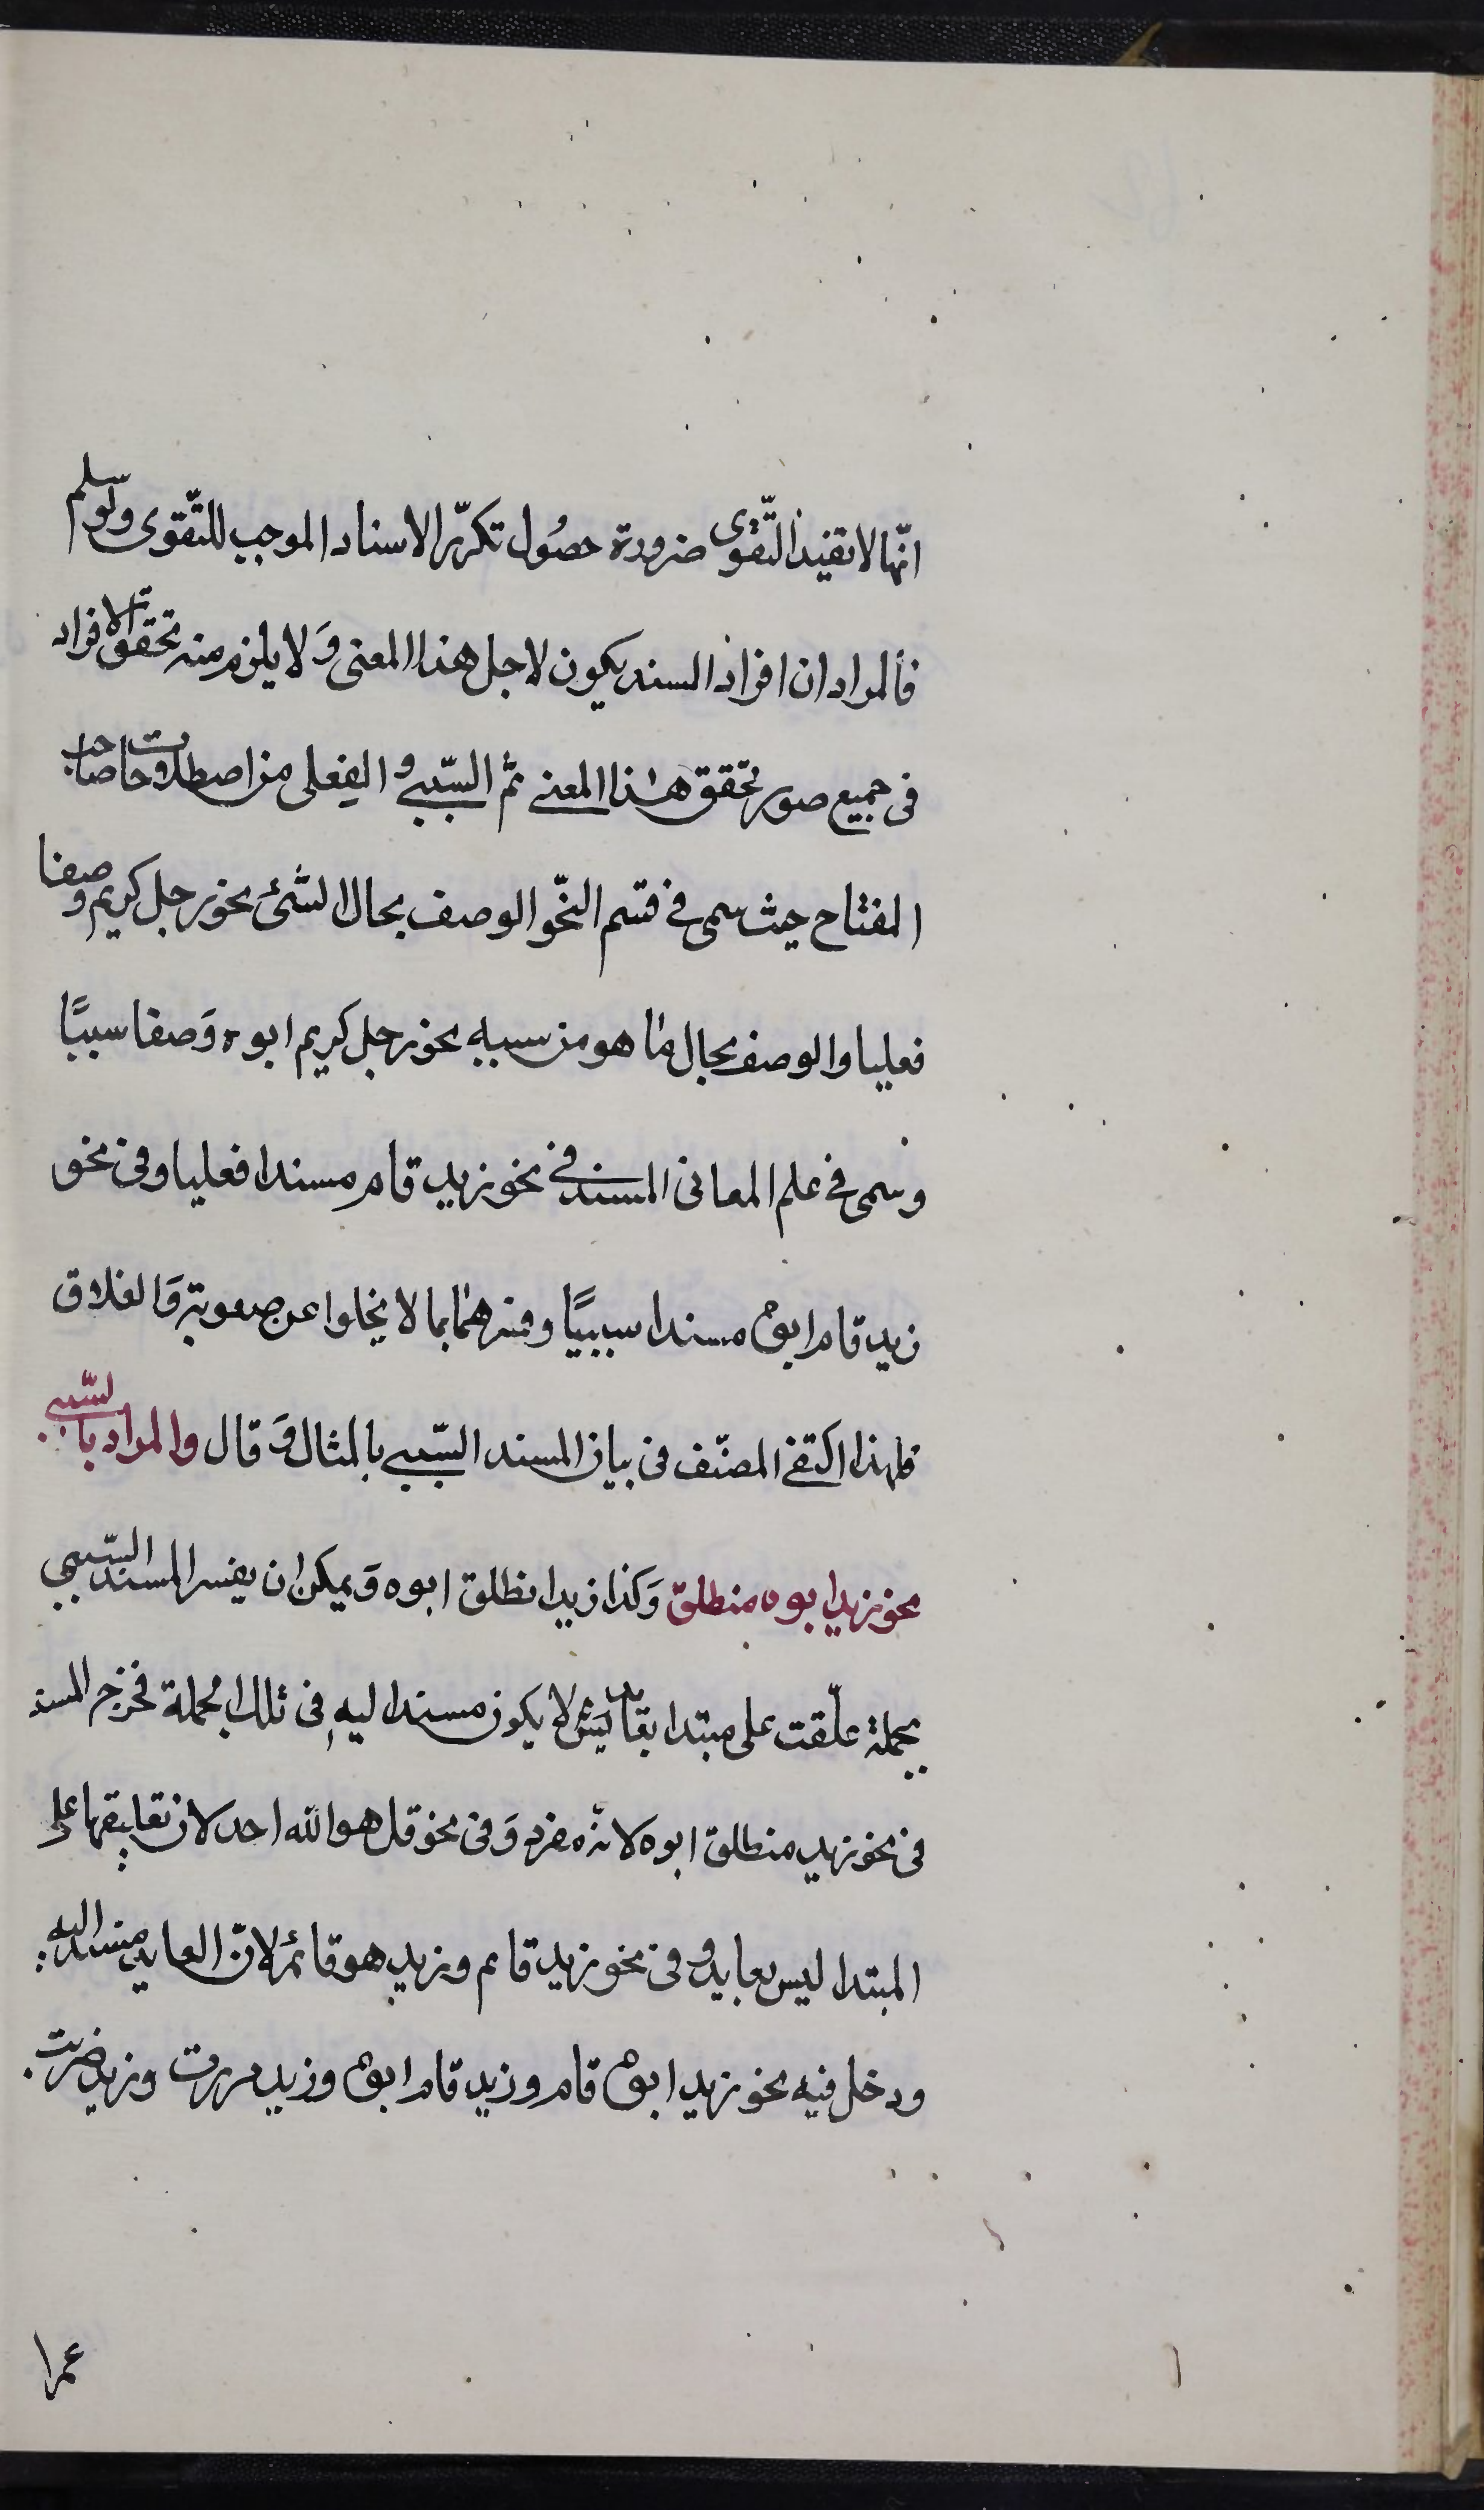 انّها لا تفيد التّقوى ضرورة حصُول تكرّر الاسناد الموجب للتّقوى ولو سلم
فألمراد ان افراد المسند يكون لاجل هذا المعنى وَ لا يلزم منه تحقق الافراد
فى جميع صور تحقق هذا المعنى ثم السّببى و الفعلى من اصطلاحات صاحب
المفتاح حيث سمى فى قسم النّحو الوصف بحال الشئ نحو رجل كريم وصفا
فعليا والوصف بحال ما هو من سببه نحو رجل كريم ابوه وَصفا سببيًا
وسمى فى علم المعانى المسند فى نحو زيد قام مسندا فعليا وفى نحو
زيد قام ابوه مسندا سببيًا وفسرهما بما لا يخلوا عن صعوبة وَ انغلاق
فلهذا اكتفى المصنّف فى بيان المسند السّببى بالمثال وَ قال والمراد بالسّببى
نحو زيد ابوه منطلق وَكذا زيد انطلق ابوه وَ يمكن ان يفسر المسند السّببى
بجملة علّقت على مبتدا بعايد لا يكون مسندا اليه فى تلك الجملة فخرج المسند
فى نحو زيد منطلق ابوه لانه مفرد وَ فى نحو قل هو الله احد لان تعليقها على
المبتدا ليس بعايد و فى نحو زيد قام وزيد هو قائم لانّ العايد مسند اليه
ودخل فيه نحو زيد ابوه قام وزيد قام ابوه وزيد مررت وزيد ضربت
عمرا